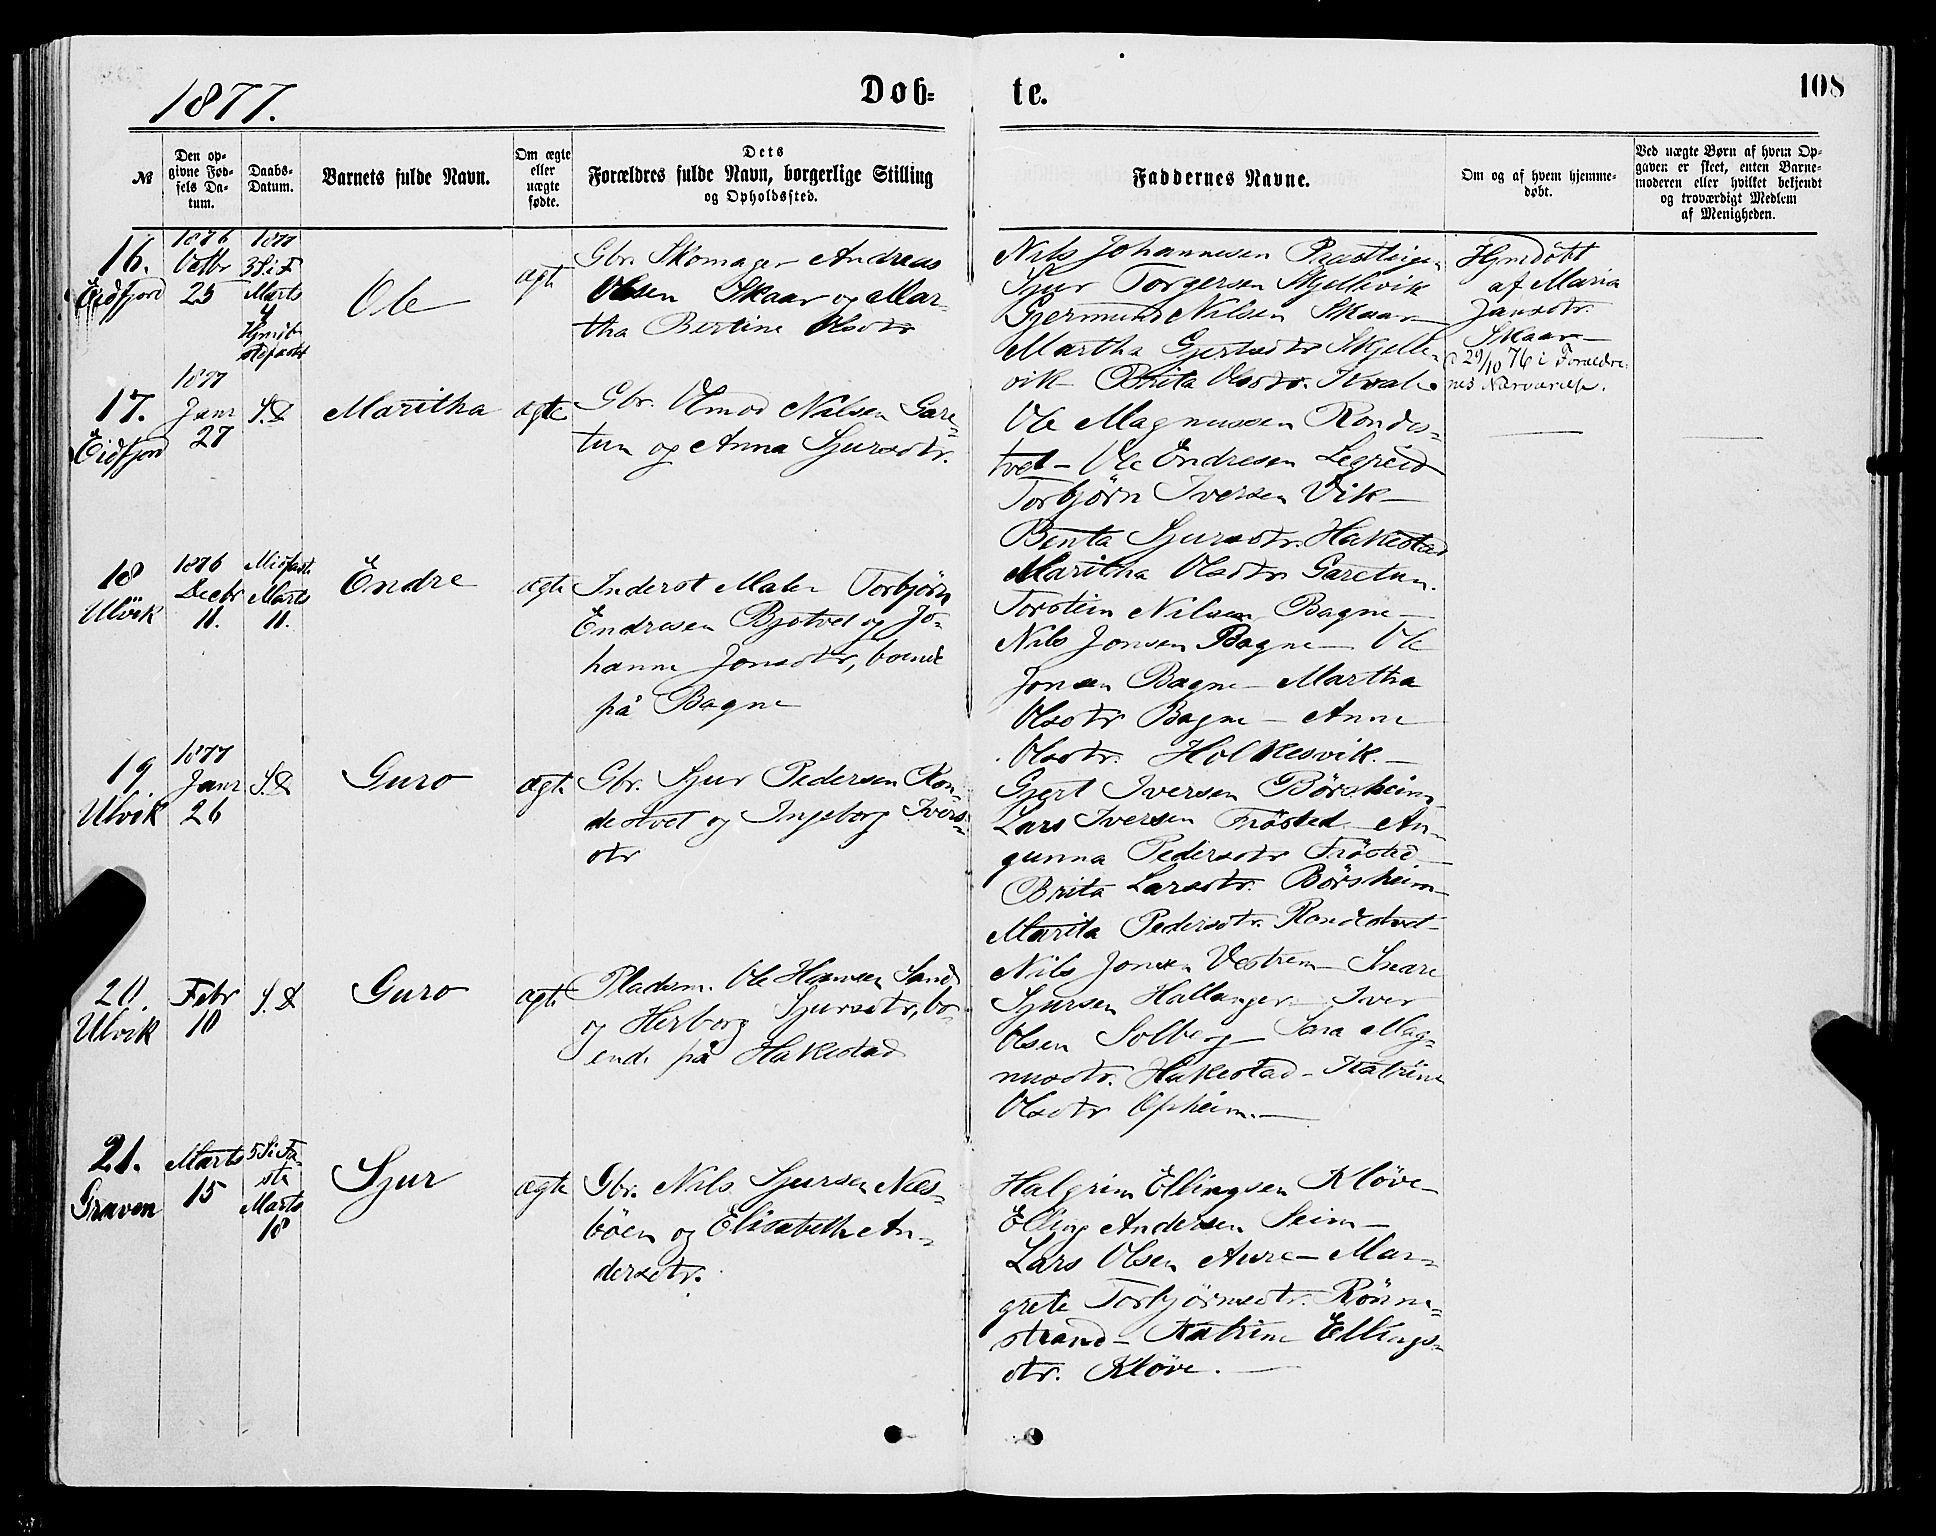 1877.
Døb-
te.
108
№
Den op-
givne Fød-
sels Da-
tum.
Daabs-
Datum.
Barnets fulde Navn.
Om ægte
eller
uægte
fødte.
Dets
Forældres fulde Navn, borgerlige Stilling
og Opholdssted.
Faddernes Navne.
Om og af hvem hjemme-
døbt.
Ved uægte Børn af hvem Op-
gaven er skeet, enten Barne-
moderen eller hvilket bekjendt
og troværdigt Medlem
af Menigheden.
16.
Eidfjord
1876
Octbr
25
1877
3 S i F
Marts
4
Hjmdb
Ole
ægt
Gbr. Skomager Andreas
Olsen Skaar og Mar-
tha Bertine Olsdtr
Nils Johannesen
Sjur Torgersen Skjellevik
Gjermund Nilsen Skaar
Martha Gjertsdtr Skjelle-
vik Brita Olsdtr. Kvale
Hjmdöbt
af Maria
Jansdtr.
Skaar
29/10 76 i Forældre-
nes Nærværelse.
17.
Eidfjord
1877
Janr
27
S. D
Maritha
ægte
Gbr. Amod Nilsen Gare-
tun og Anna Sjursdtr.
Ole Magnussen Rondes-
tvet - Ole Endresen Legreid
Torbjörn Iversen Vik -
Benta Sjursdtr. Hakestad
Maritha Olsdtr Garetun.
18
Ulvik
1876
Decbr
11.
Midfast
Marts
11.
Endre
ægte
Inderst Maler Torbjörn
Endresen Bjotvet og Jo-
hanne Jonsdtr, boende
på Bagne
Torstein Nilsen Bagne -
Nils Jonsen Bagne - Ole
Jonsen Bagne - Martha
Olsdtr Bagne - Anne
Olsdtr. Holkesvik. -
19
Ulvik
1877
Janr
26
S. D
Guro
ægte
Gbr. Sjur Pedersen Ron-
destvet og Ingeborg Ivers-
dtr
Gjert Iversen Börsheim
Lars Iversen Tröstad - An-
gunna Pedersdtr
Brita Larsdtr. Börsheim -
Marita Pedersdtr. Rondestvet -
20.
Ulvik
Febr
10
S. D
Guro
ægte
Pladsm. Ole Hansen Sand
og Herborg Sjursdtr, bo-
ende på Hakestad
Nils Jonsen Vestrem - Snare
Sjursen Hallanger - Iver
Olsen Solberg - Sara Mag-
nusdtr. Hakestad - Katrine
Olsdtr Opheim. -
21.
Graven
Marts
15
5 S i Fa-
ste
Marts
18
Sjur
ægte
Gbr. Nils Sjursen Næs-
böen og Elisabeth An-
dersdtr.
Halgrim Ellingsen Klöve -
Elling Andersen Seim -
Lars Olsen Aure - Mar-
grete Torbjörnsdtr. Rönne-
strand - Katrine Ellings-
dtr. Klöve. -